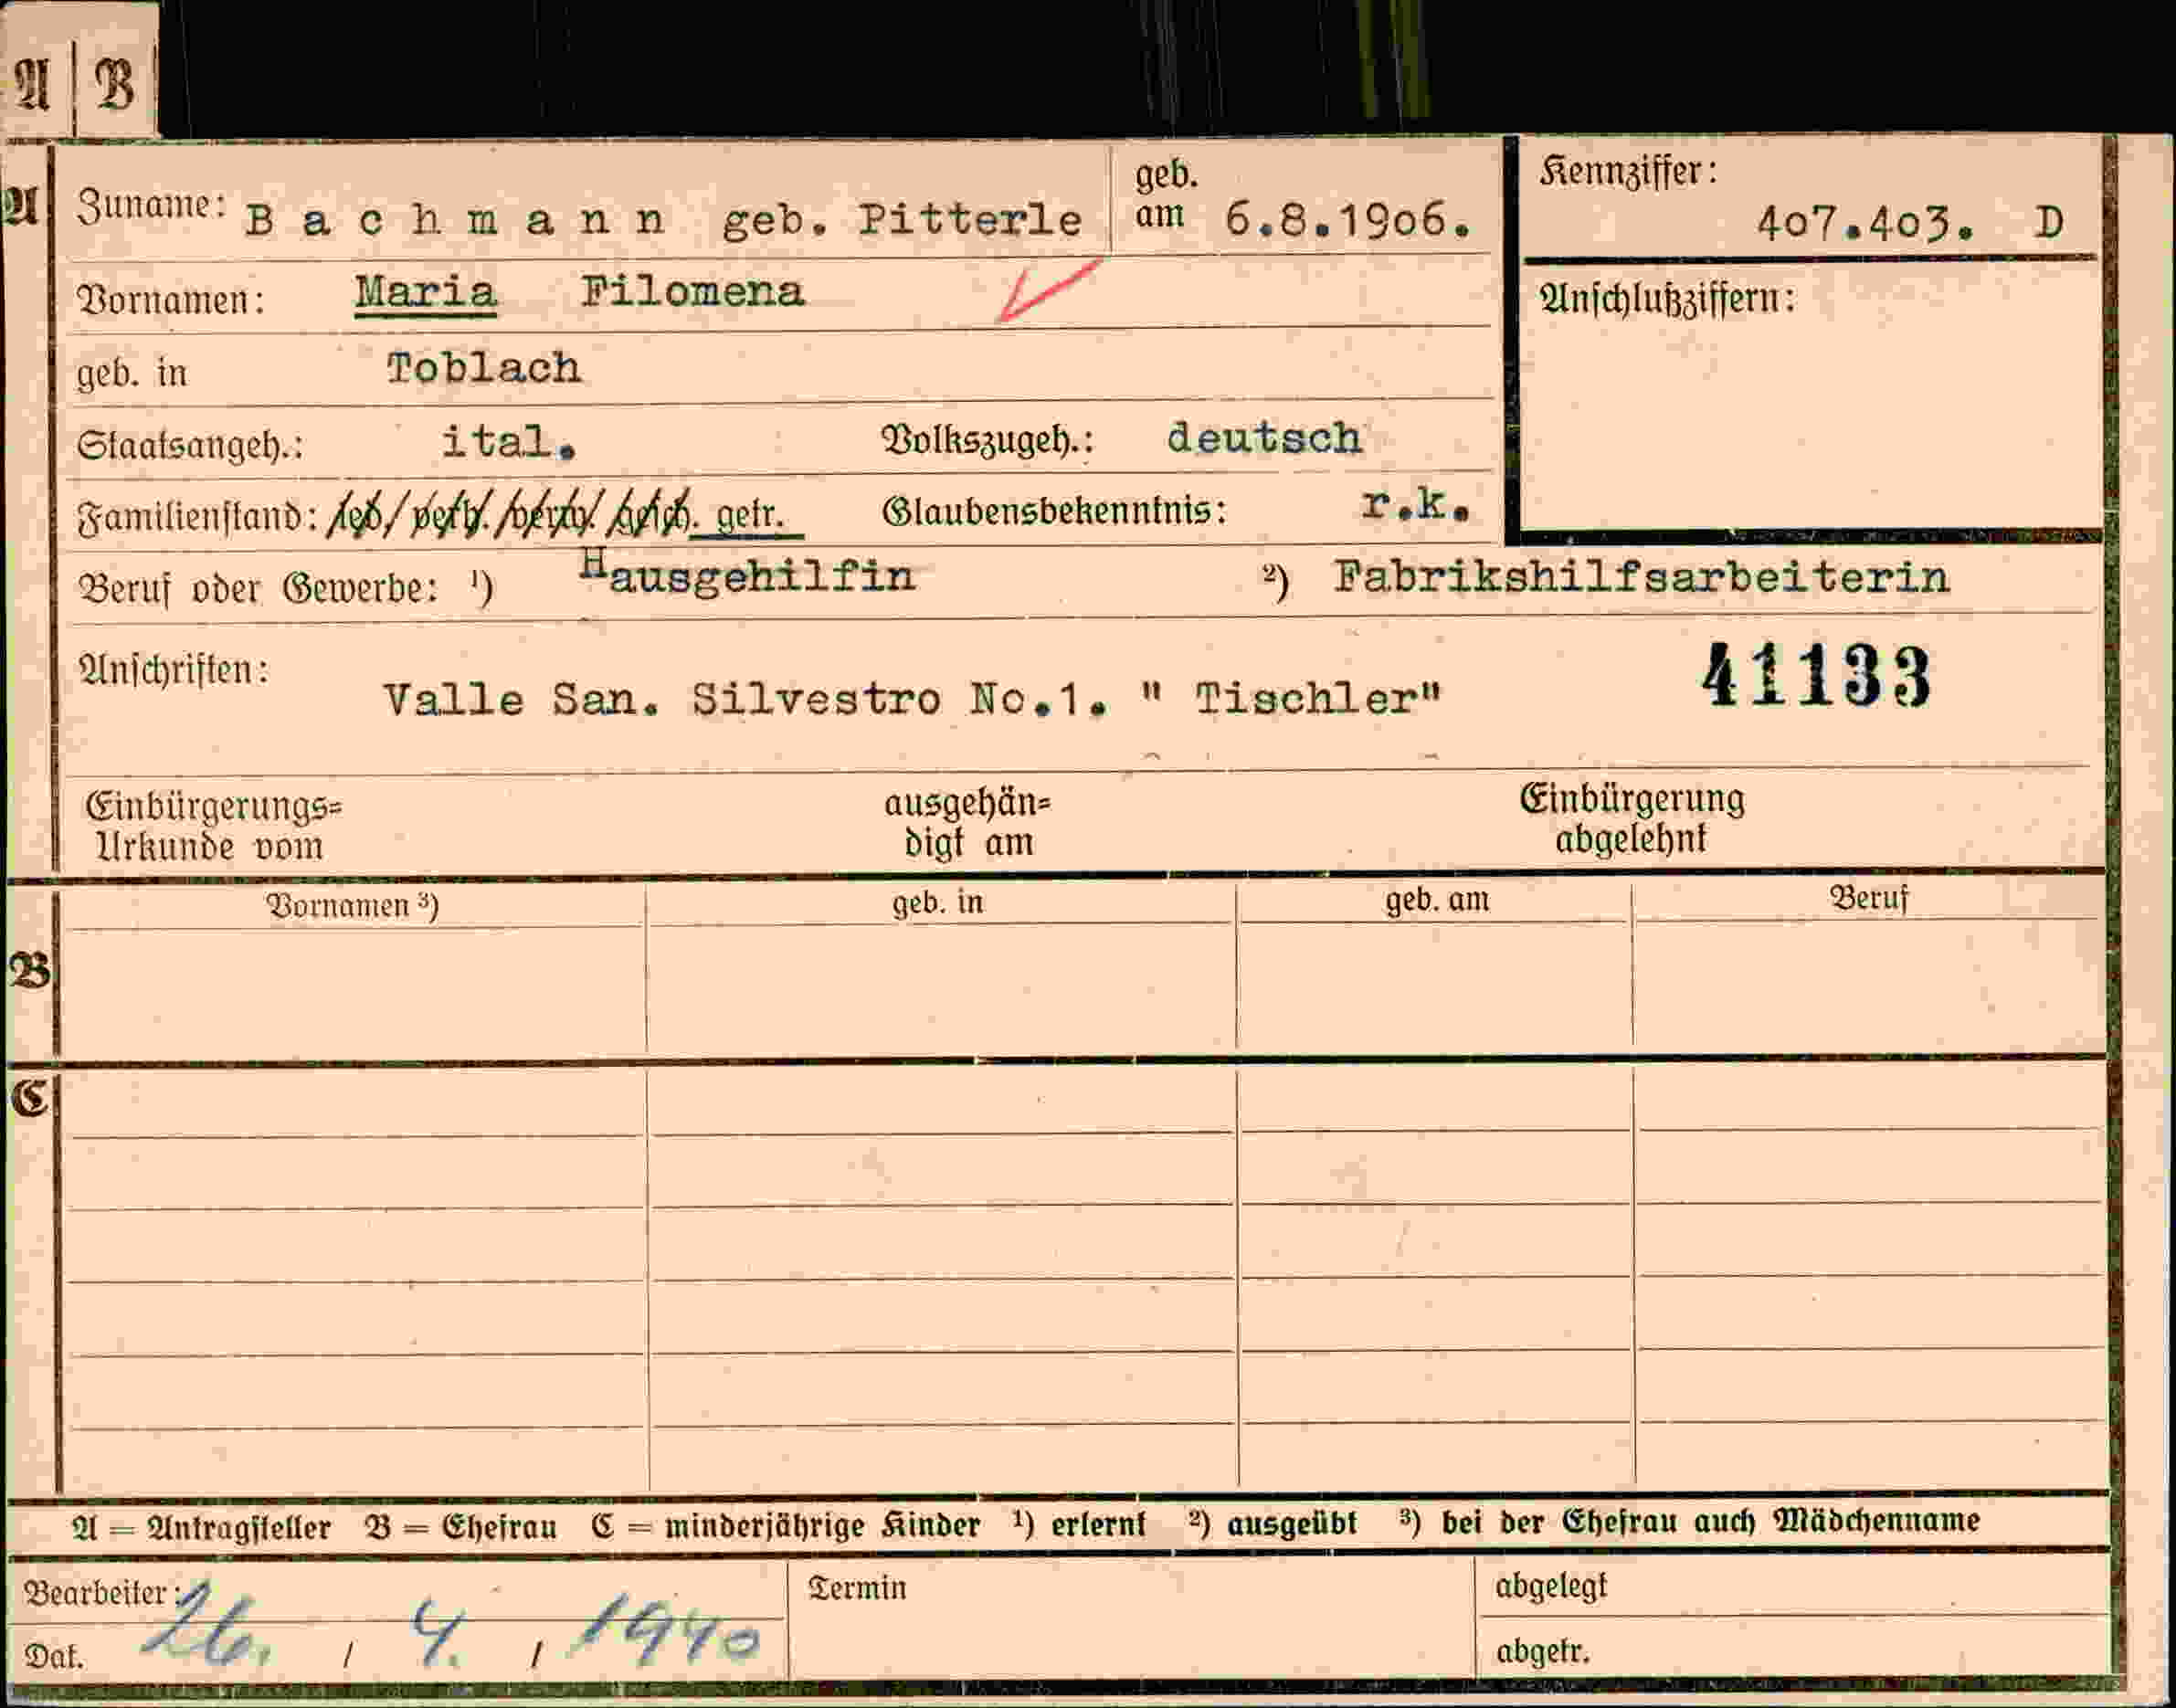 A B
A Zuname: B a c h m a n n geb. Pitterle geb. am 6.8.1906. Kennziffer: 407.403. D
Vornamen: Maria Filomena Anschlußziffern:
geb. in Toblach
Staatsangeh.: ital. Volkszugeh.: deutsch
Familienstand: led/verh./verw./gesch. getr. Glaubensbekenntnis: r.k.
Beruf oder Gewerbe: ¹) Hausgehilfin ²) Fabrikshilfsarbeiterin
Anschriften: 41133
Valle San. Silvestro No.1. " Tischler"
Einbürgerungs= ausgehän= Einbürgerung
Urkunde vom digt am abgelehnt
Vornamen ³) geb. in geb. am Beruf
B
C
A = Antragsteller B = Ehefrau C = minderjährige Kinder ¹) erlernt ²) ausgeübt ³) bei der Ehefrau auch Mädchenname
Bearbeiter: Termin abgelegt
Dat. 26. / 4. / 1940 abgetr.